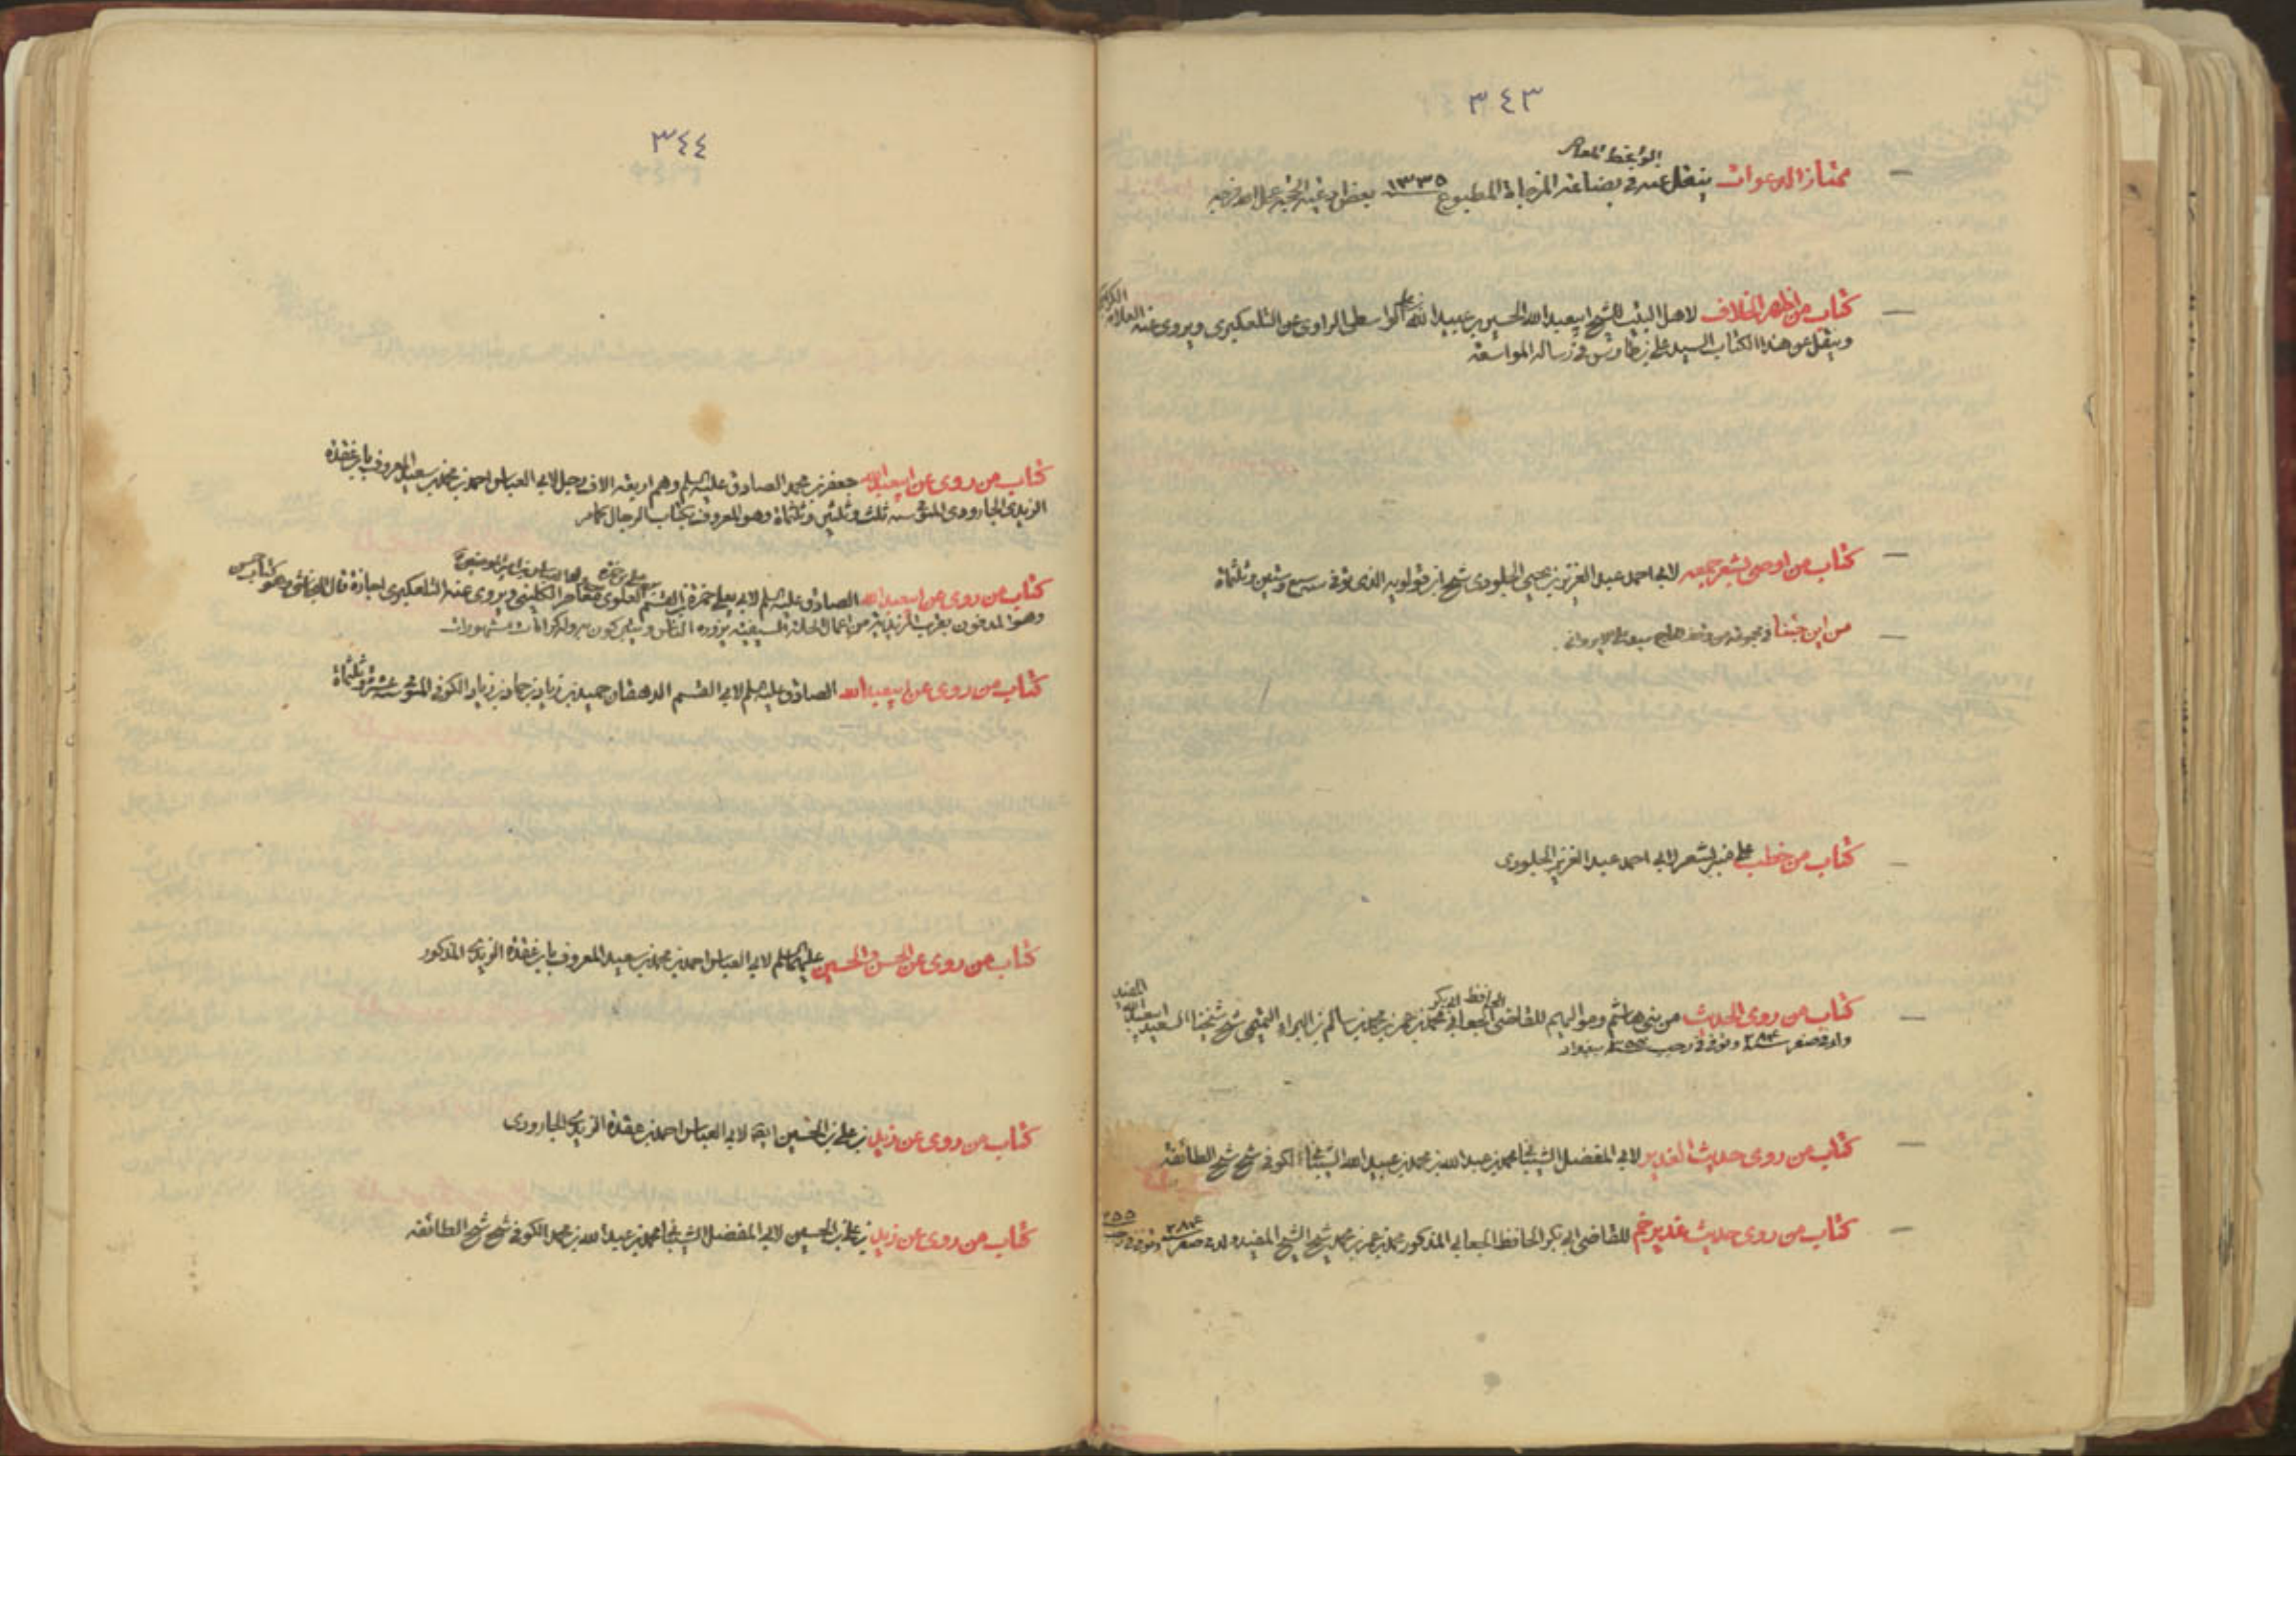 ٣٤٣
ممتاز الدعوات ينقل عنه في بضاعة المزجاة المطبوع ١٣٣٥ بعض ادعية الحجة عجل الله فرجه
كتاب من اظهر الخلاف لاهل البيت للشيخ ابيعبد الله الحسين بن عبيد الله بن علي الواسطي الراوي عن التلعكبري ويروي عنه العلامة الكراجكي
وينقل عن هذا الكتاب السيد علي بن طاوس في رسالة المواسعة
كتاب من اوصى بشعر جمعه لابي احمد عبد العزيز بن يحيى الجلودي شيخ ابن قولويه الذي توفي سنة سبع وستين وثلثماة
من اين جئنا في مجموعة من وقف الحاج سيد علي الايرواني
كتاب من خطب على منبر بشعر لابي احمد عبد العزيز الجلودي
كتاب من روى الحديث من بني هاشم ومواليهم للقاضي الجعابي الحافظ ابي بكر محمد بن عمر بن محمد بن سالم بن البراء التميمي شيخ شيخنا السعيد ابيعبد الله المفيد
ولد في صفر ٢٨٤ وتوفي في رجب ٣٥٥ ببغداد
كتاب من روى حديث الغدير لابي المفضل الشيباني محمد بن عبد الله بن محمد بن عبيد الله الشيباني الكوفي شيخ شيخ الطائفة
كتاب من روى حديث غدير خم للقاضي ابي بكر الحافظ الجعابي المذكور محمد بن عمر بن محمد شيخ الشيخ المفيد ولد في صفر ٢٨٤ وتوفي في رجب ٣٥٥
٣٤٤
كتاب من روى عن ابيعبد الله جعفر بن محمد الصادق عليه السلم وهم اربعة الاف رجل لابي العباس احمد بن محمد بن سعيد المعروف بابن عقدة
الزيدي الجارودي المتوفى سنة ثلث وثلثين وثلثماة وهو المعروف بكتاب الرجال كما مر
كتاب من روى عن ابيعبد الله الصادق عليه السلم لابي يعلى حمزة بن القسم العلوي معاصر الكليني ويروي عنه التلعكبري اجازة قال النجاشي وهو كتاب حسن
وهو المدفون بقرب المزيدية من اعمال الحلة السيفية يزوره الناس ويتبركون به وله كرامات مشهورات
كتاب من روى عن ابيعبد الله الصادق عليه السلم لابي القسم الدهقان حميد بن زياد بن حماد بن زياد الكوفي المتوفى سنة عشر وثلثماة
كتاب من روى عن الحسن والحسين عليهما السلم لابي العباس احمد بن محمد بن سعيد المعروف بابن عقدة الزيدي المذكور
كتاب من روى عن زيد بن علي بن الحسين ايضا لابي العباس احمد بن عقدة الزيدي الجارودي
كتاب من روى عن زيد بن علي بن الحسين لابي المفضل الشيباني محمد بن عبد الله بن محمد الكوفي شيخ شيخ الطائفة